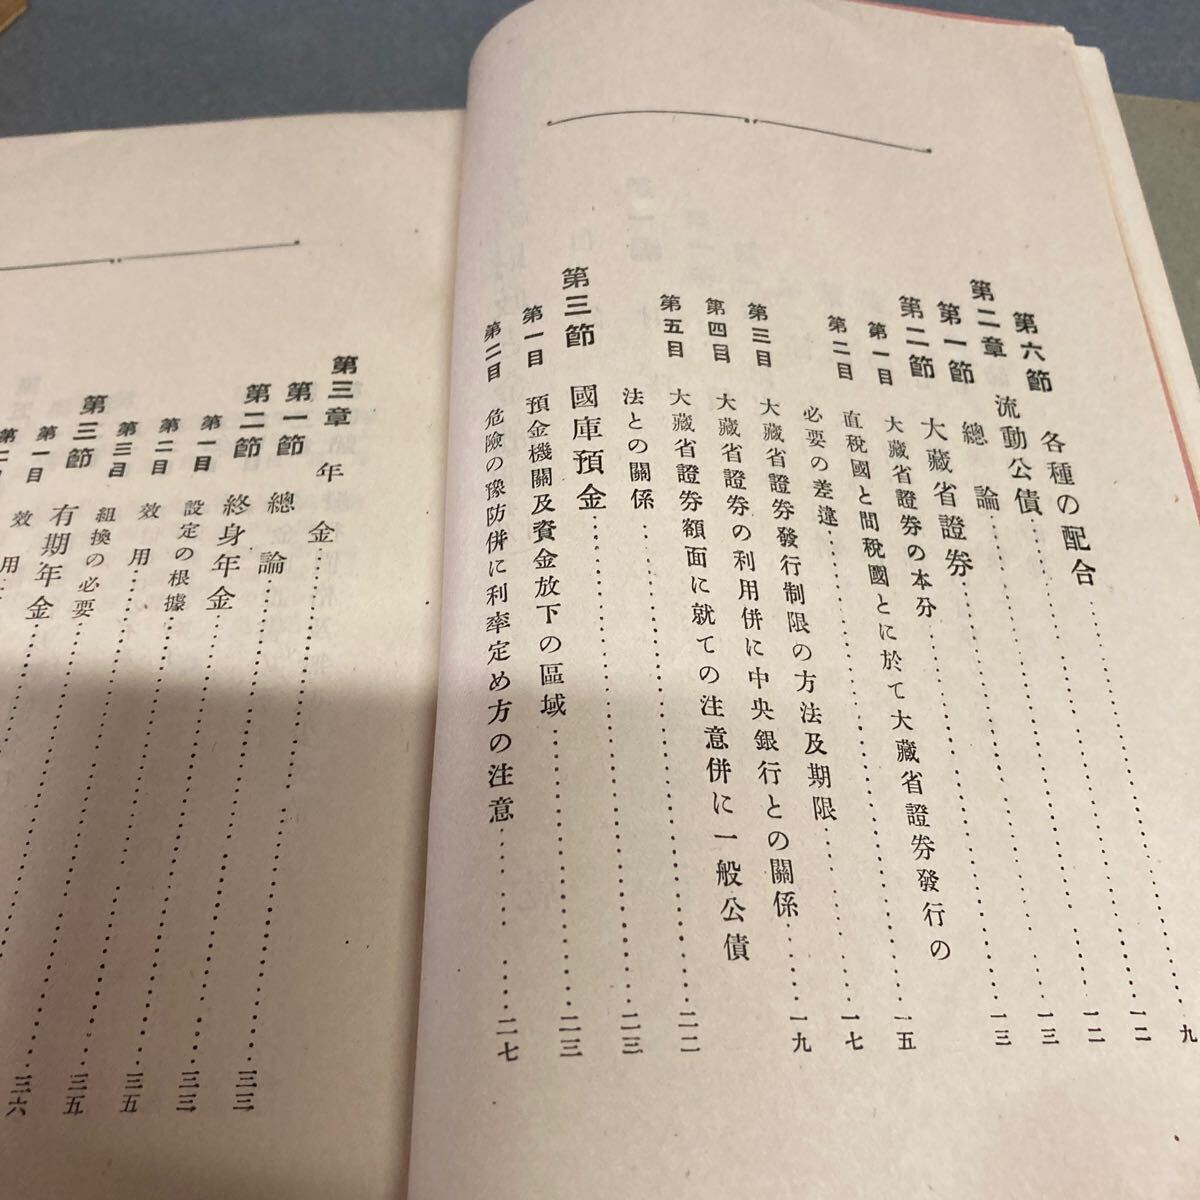 第六節 各種の配合……九
第二章 流動公債……一二
第一節 總論……一二
第二節 大藏省證券……一三
第一目 大藏省證券の本分……一三
第二目 直税國と間税國とに於て大藏省證券發行の
必要の差違……一五
第三目 大藏省證券發行制限の方法及期限……一七
第四目 大藏省證券の利用併に中央銀行との關係……一九
第五目 大藏省證券額面に就ての注意併に一般公債
法との關係……二二
第三節 國庫預金……二三
第一目 預金機關及資金放下の區域……二三
第二目 危險の豫防併に利率定め方の注意……二七
第三章 年金……三三
第一節 總論……三三
第二節 終身年金……三五
第一目 設定の根據……三五
第二目 效用……三六
第三目 組換の必要……
第三節 有期年金……
第一目 效用……
第二目